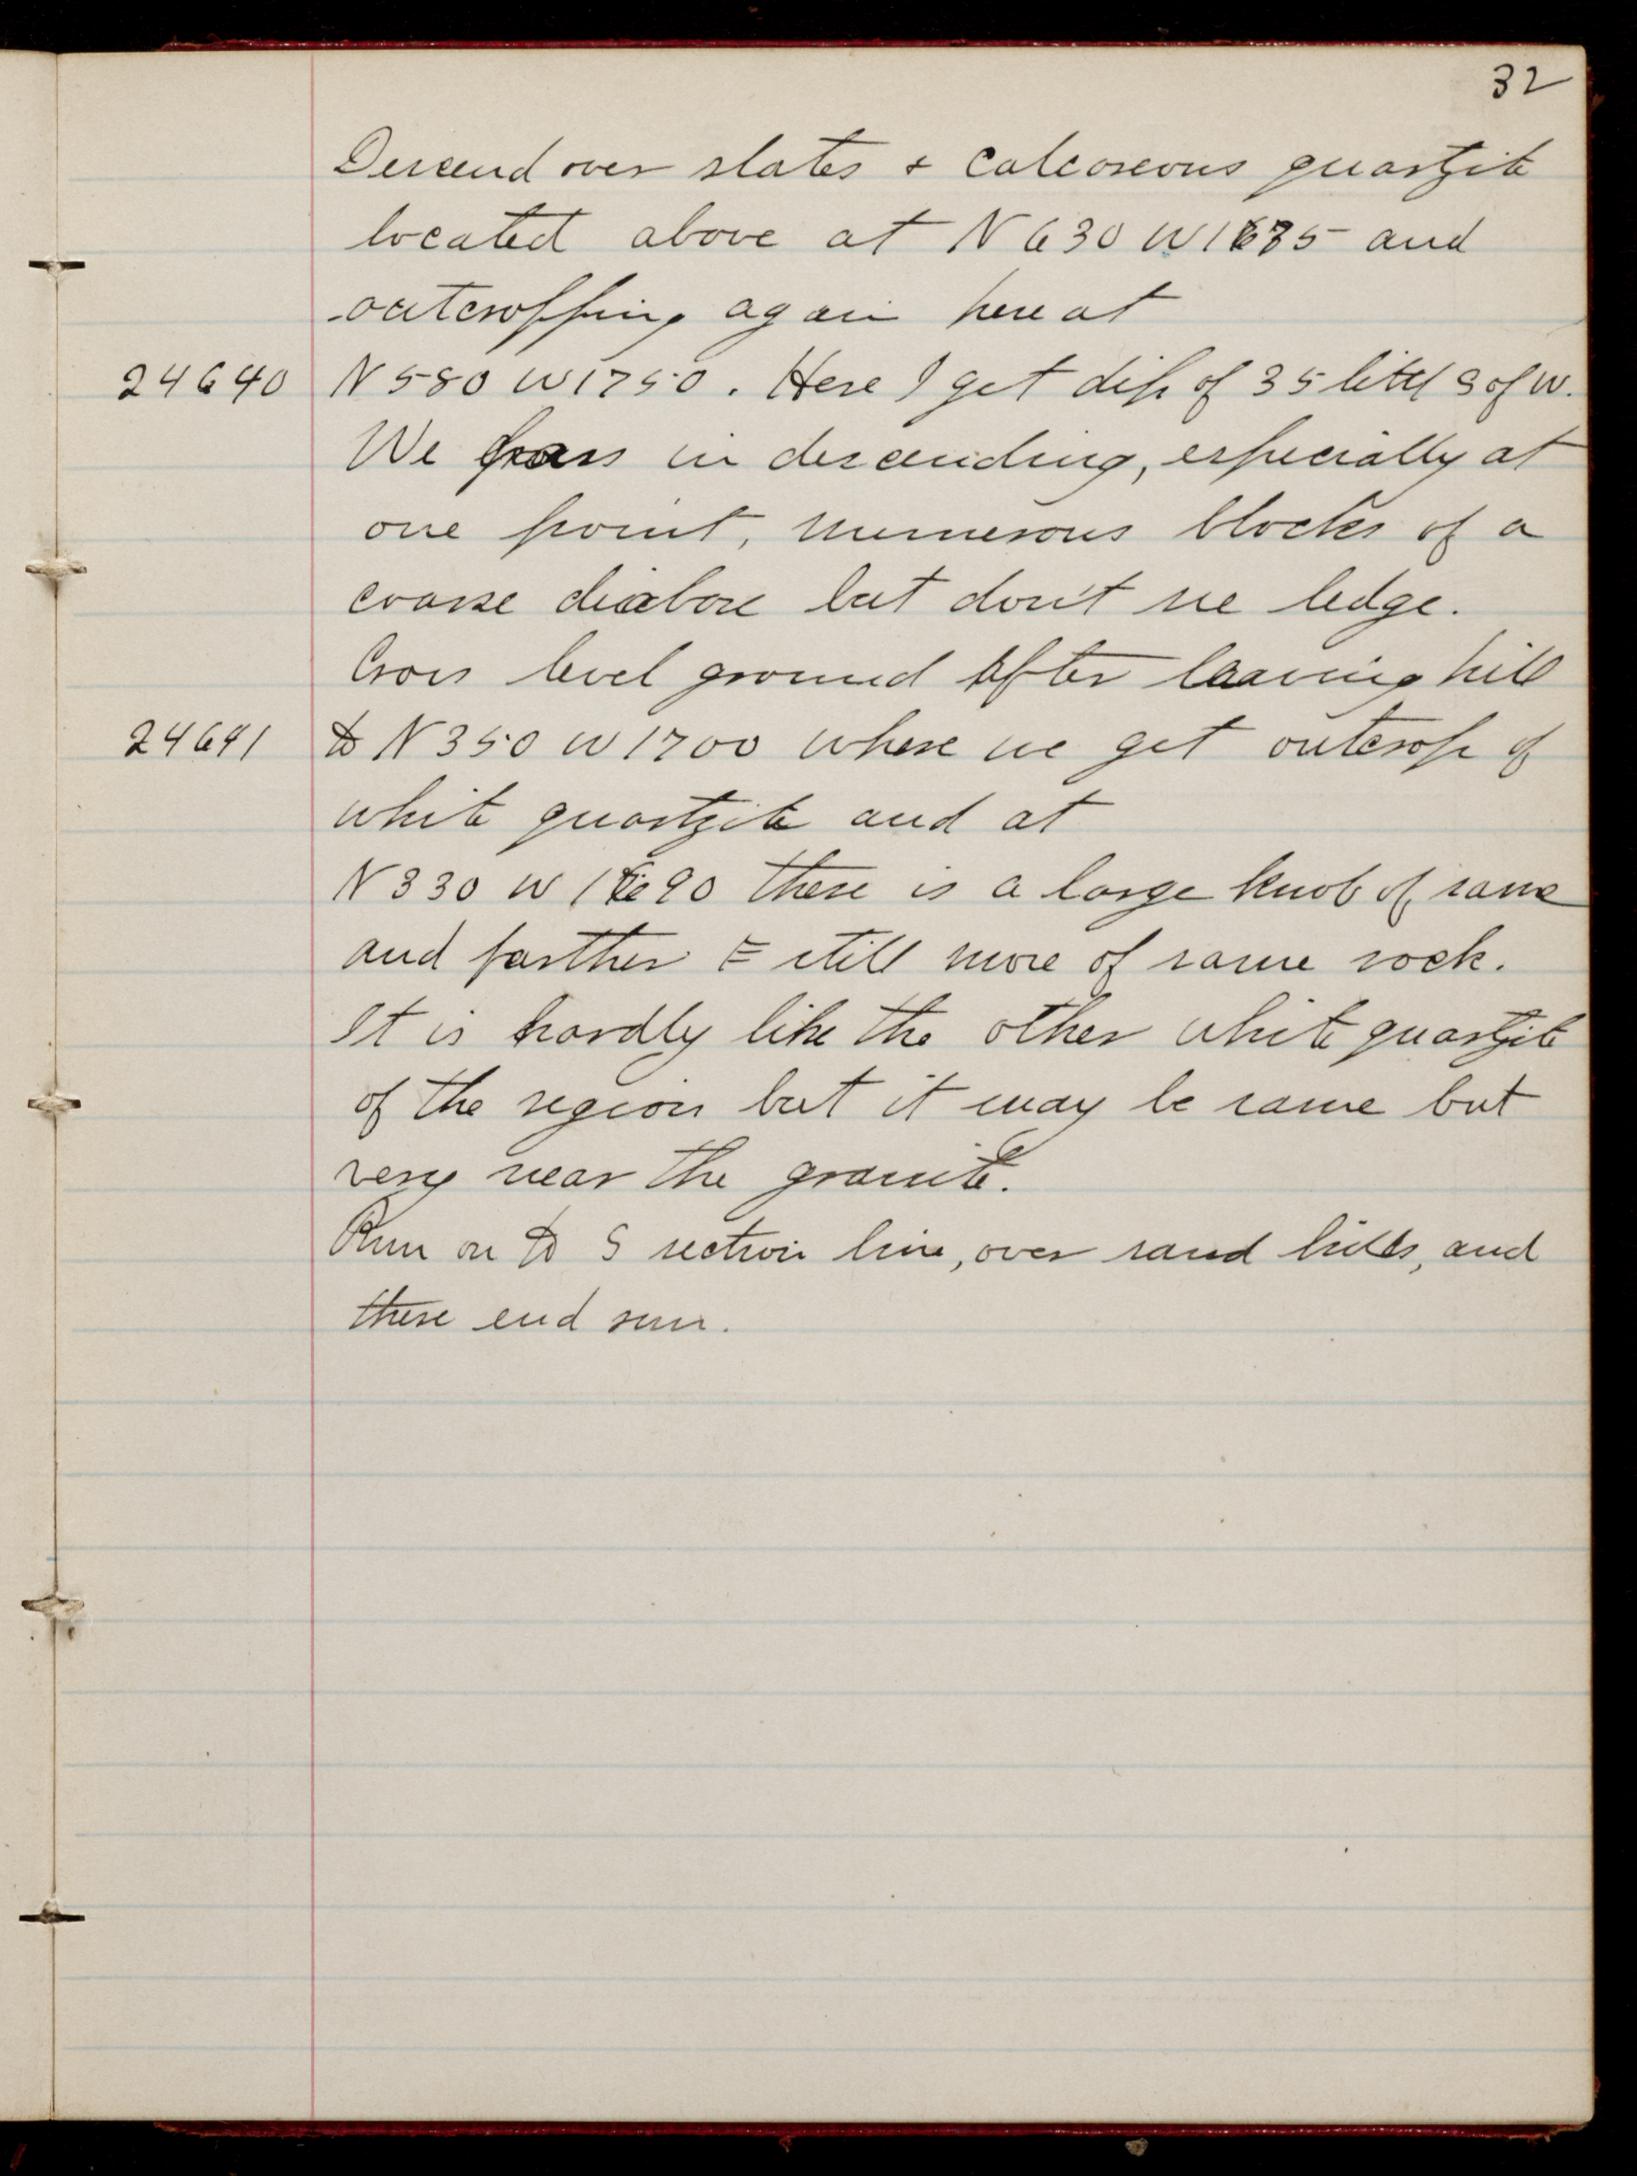 32
Descend over slates + calcareous quartzite
located above at N 630 W 1685 and
outcropping again here at
24640 N 580 W 1750. Here I get dip of 35 little S of W.
We pass in descending, especially at
one point, numerous blocks of a
coarse diabase but don't see ledge.
Cross level ground after leaving hill
24641 to N 350 W 1700 where we get outcrop of
white quartzite and at
N 330 W 1690 there is a large knob of same
and farther E still more of same rock.
It is hardly like the other white quartzite
of the region but it may be same but
very near the granite.
Run on to S section line, over sand hills, and
there end run.